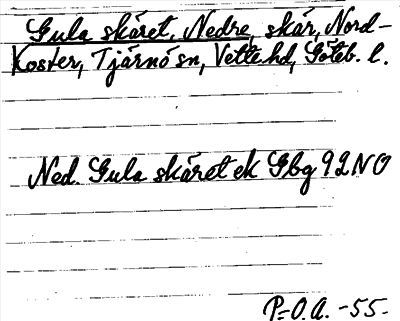 Gula skäret, Nedre, skär, Nord-
Koster, Tjärnö sn, Vette hd, Göteb. l.
Ned. Gula skäret ek Gbg 92 NO
P-O.A. -55-